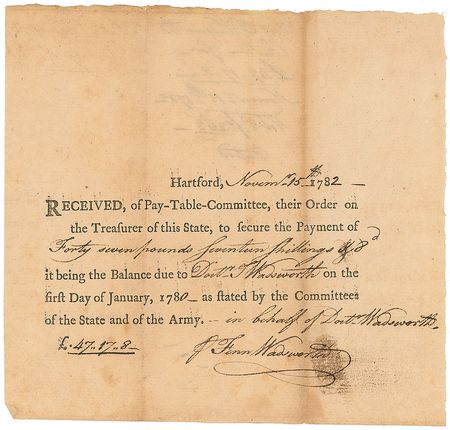 Hartford, Novemr. 15th 1782 —
RECEIVED, of Pay-Table-Committee, their Order on
the Treasurer of this State, to secure the Payment of
Forty seven pounds Seventeen Shillings & 8d
it being the Balance due to Doctr. J Wadsworth on the
first Day of January, 1780 — as stated by the Committees
of the State and of the Army. — in behalf of Doctr. Wadsworth.
£. 47..17..8 —
Fenn Wadsworth